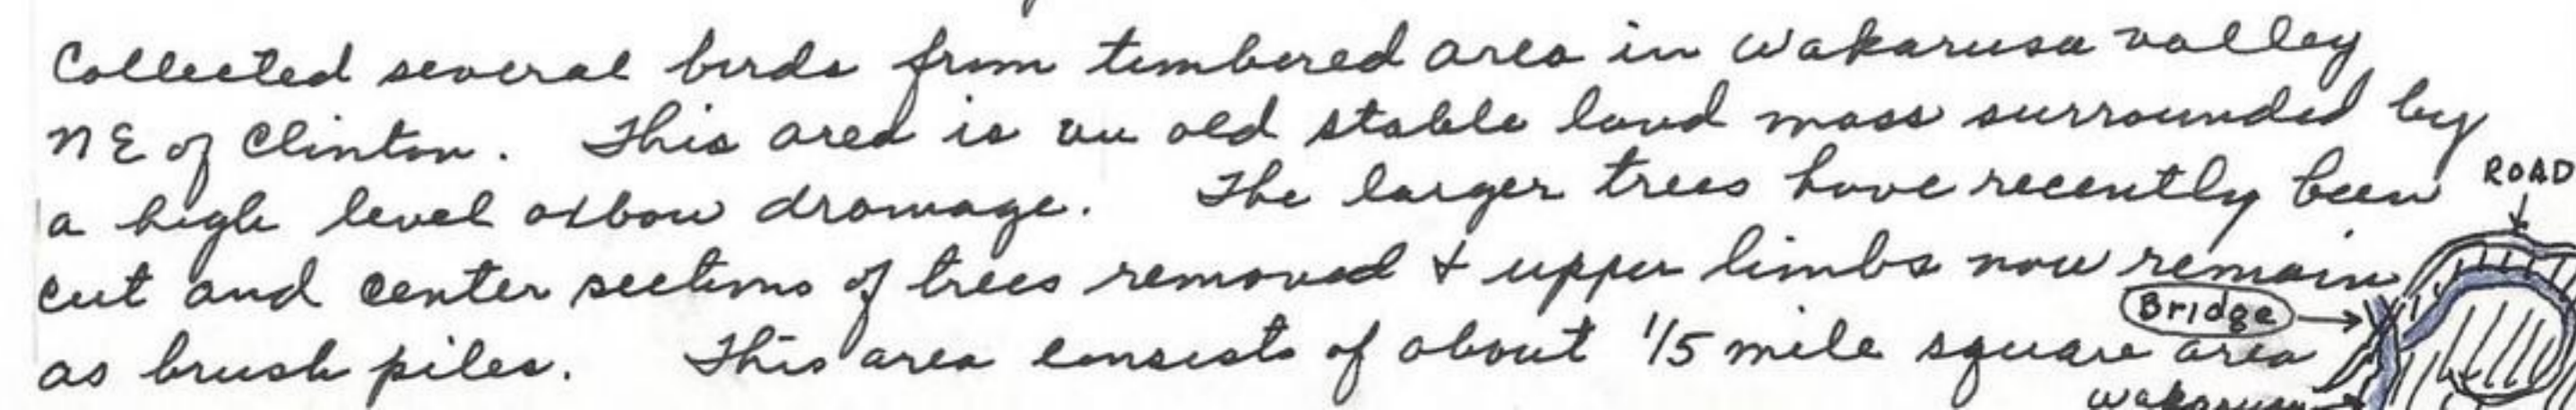 Collected several birds from timbered area in Wakarusa valley
NE of Clinton. This area is an old stable land mass surrounded by
a high level oxbow drainage. The larger trees have recently been
ROAD
cut and center sections of trees removed & upper limbs now remain
Bridge
as brush piles. This area consists of about 1/5 mile square area
Wakarusa